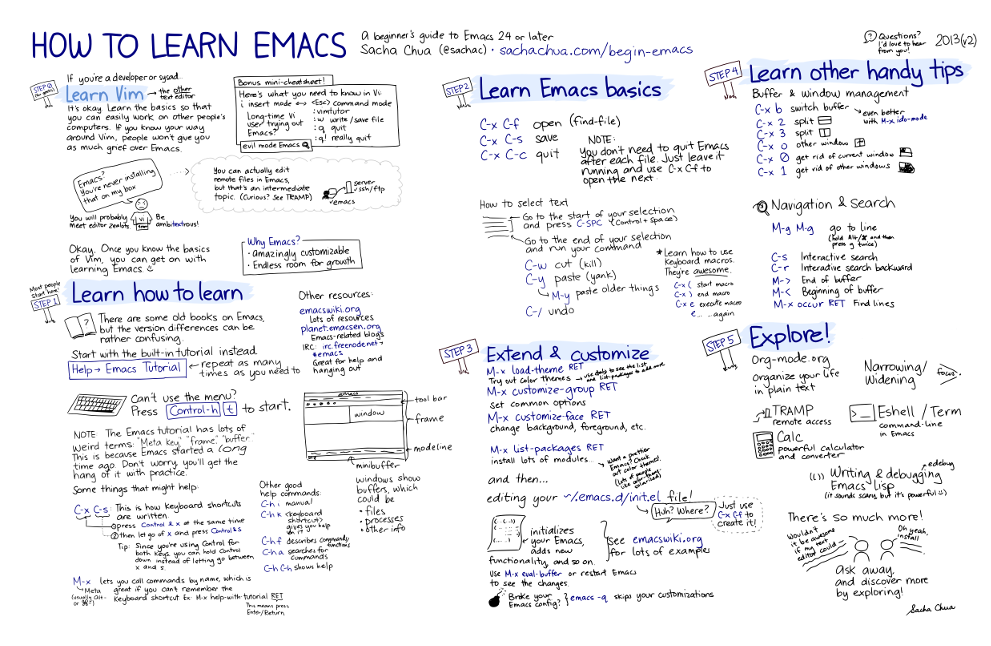 HOW TO LEARN EMACS
A beginner's guide to Emacs 24 or later
Sacha Chua (@sachac) · sachachua.com/begin-emacs
Questions?
I'd love to hear
from you!
2013 (v2)
STEP 0
If you're a developer or sysad...
Learn Vim → the other
text editor
It's okay. Learn the basics so that
you can easily work on other people's
computers. If you know your way
around Vim, people won't give you
as much grief over Emacs.
Bonus mini-cheatsheet!
Here's what you need to know in Vi:
i insert mode <Esc> command mode
:w write/save file
:q quit
:q! really quit
Long-time Vi
user trying out
Emacs?
evil mode Emacs
Emacs?
You're never installing
that on my box
You can actually edit
remote files in Emacs,
but that's an intermediate
topic. (Curious? See TRAMP)
server
ssh/ftp
emacs
You will probably
meet editor zealots
Vi
Be
ambitextrous!
Okay. Once you know the basics
of Vim, you can get on with
learning Emacs
Why Emacs?
· amazingly customizable
· Endless room for growth
Most people
start here
STEP 1
Learn how to learn
There are some old books on Emacs,
but the version differences can be
rather confusing.
Start with the built-in tutorial instead.
Help → Emacs Tutorial
← repeat as many
times as you need to
Can't use the menu?
Press Control-h t to start.
NOTE The Emacs tutorial has lots of
weird terms: "Meta key" "frame" "buffer"...
This is because Emacs started a long
time ago. Don't worry, you'll get the
hang of it with practice.
Some things that might help:
C-x C-s This is how keyboard shortcuts
are written.
① press Control & x at the same time
② then let go of x and press Control & s
Tip: Since you're using Control for
both keys, you can hold Control
down instead of letting go between
x and s.
M-x lets you call commands by name, which is
great if you can't remember the
keyboard shortcut. Ex: M-x help-with-tutorial RET
Meta
(usually Alt-
or ⌘?)
This means press
Enter/Return
Other resources:
emacswiki.org
lots of resources
planet.emacsen.org
Emacs-related blogs
IRC: irc.freenode.net
#emacs
Great for help and
hanging out
emacs
window
tool bar
frame
modeline
minibuffer
windows show
buffers, which
could be:
· files
· processes
· other info
Other good
help commands:
C-h i manual
C-h k keyboard
shortcuts
gives you help
C-h f describes commands/
functions
C-h a searches for
commands
C-h C-h shows help
STEP 2
Learn Emacs basics
C-x C-f open (find-file)
C-x C-s save
C-x C-c quit
NOTE:
You don't need to quit Emacs
after each file. Just leave it
running and use C-x C-f to
open the next
How to select text
Go to the start of your selection
and press C-SPC (Control + Space)
Go to the end of your selection
and run your command
C-w cut (kill)
C-y paste (yank)
M-y paste older things
C-/ undo
★ Learn how to use
keyboard macros.
They're awesome.
C-x ( start macro
C-x ) end macro
C-x e execute macro
e... ...again
STEP 3
Extend & customize
M-x load-theme RET
Try out color themes
M-x customize-group RET
set common options
M-x customize-face RET
change background, foreground, etc.
M-x list-packages RET
install lots of modules...
and then...
editing your ~/.emacs.d/init.el file!
Huh? Where?
Just use
C-x C-f to
create it!
initializes
your Emacs,
adds new
functionality, and so on.
see emacswiki.org
for lots of examples
Use M-x eval-buffer or restart Emacs
to see the changes.
Broke your
Emacs config?
emacs -q skips your customizations
STEP 4
Learn other handy tips
Buffer & window management
C-x b switch buffer
→ even better
with M-x ido-mode
C-x 2 split
C-x 3 split
C-x o other window
C-x 0 get rid of current window
C-x 1 get rid of other windows
Navigation & Search
M-g M-g go to line
(hold Alt/⌘ and then
press g twice)
C-s Interactive search
C-r Interactive search backward
M-> End of buffer
M-< Beginning of buffer
M-x occur RET Find lines
STEP 5
Explore!
Org-mode.org
organize your life
in plain text
Narrowing/
Widening
focus.
TRAMP
remote access
Eshell / Term
command-line
in Emacs
Calc
powerful calculator
and converter
Writing & debugging
Emacs Lisp
edebug
(it sounds scary, but it's powerful)
There's so much more!
Wouldn't
it be awesome
if my text
editor could...
Oh yeah,
install
Ask away,
and discover more
by exploring!
Sacha Chua